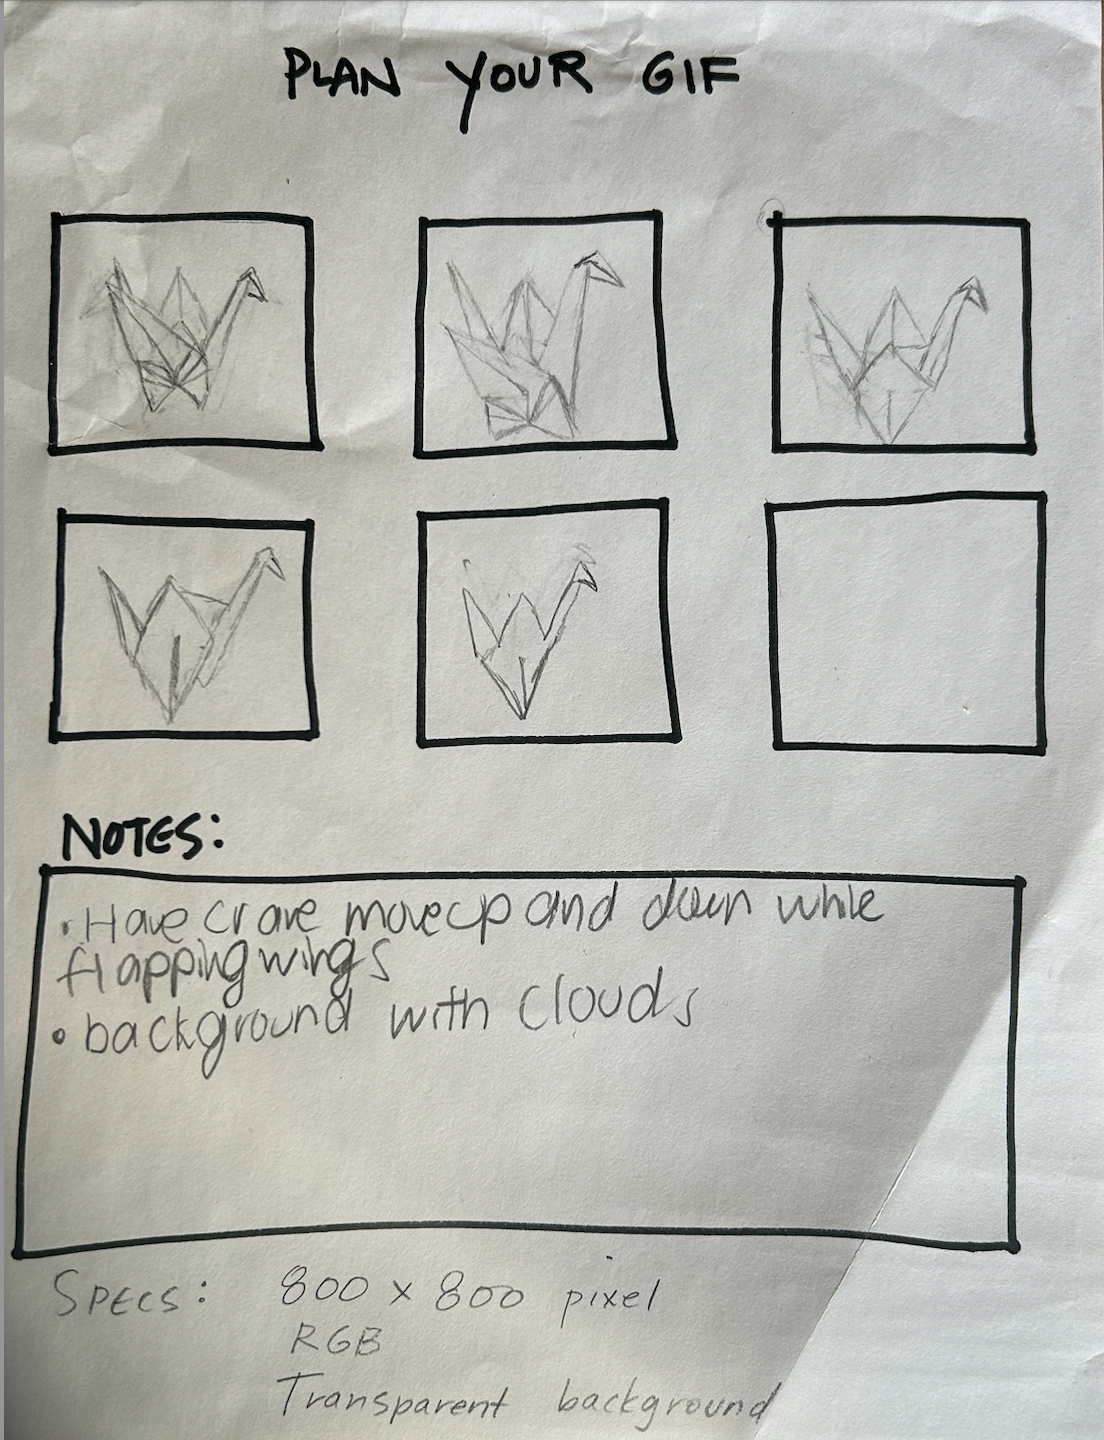 PLAN YOUR GIF
NOTES:
• Have crane move up and down while
flapping wings
• background with clouds
SPECS: 800 x 800 pixel
RGB
Transparent background